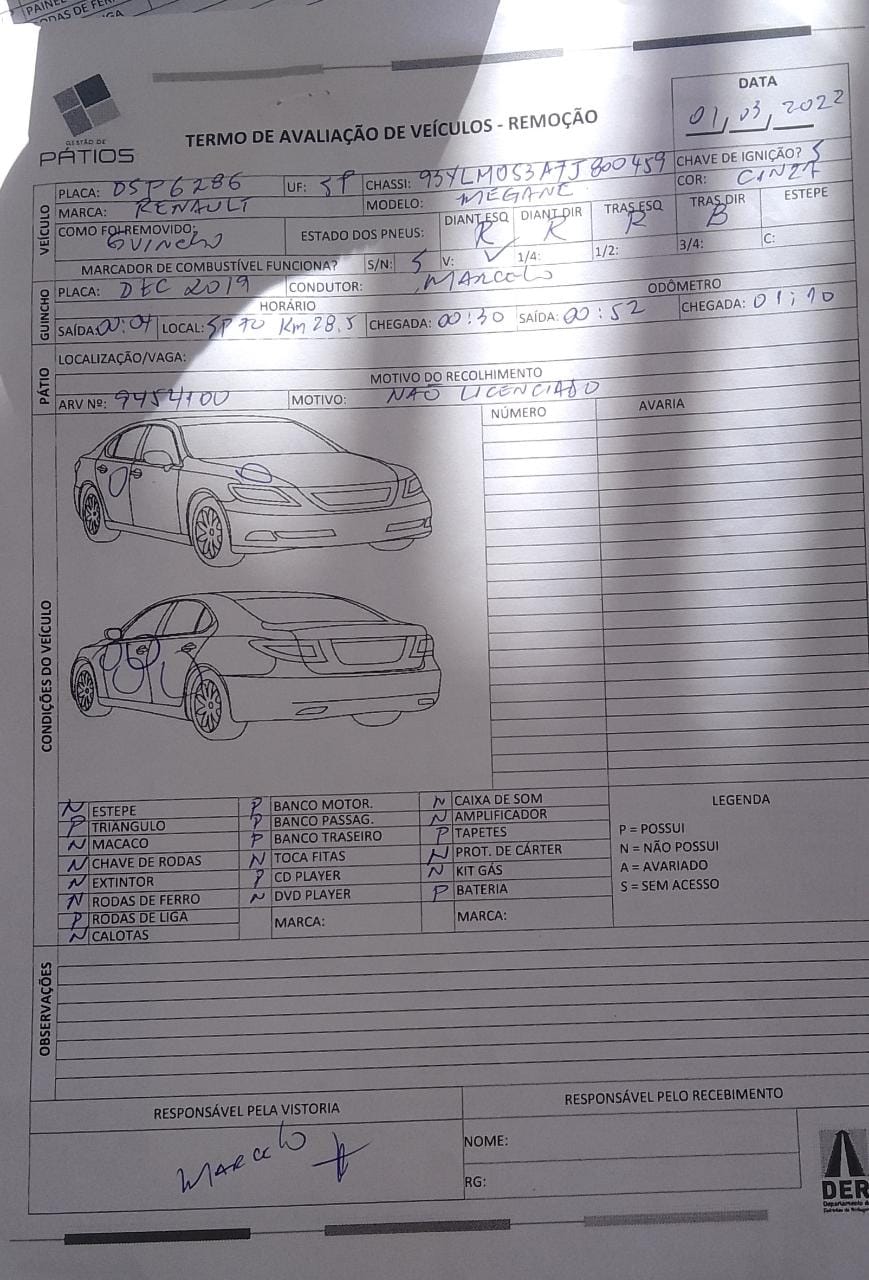 PAINEL
RODAS DE FER
GA
GESTÃO DE
PÁTIOS
TERMO DE AVALIAÇÃO DE VEÍCULOS - REMOÇÃO
DATA
01, 03, 2022
VEÍCULO
PLACA: DSP6286 UF: SP CHASSI: 93YLM0S3A7J800459 CHAVE DE IGNIÇÃO? S
MARCA: RENAULT MODELO: MEGANE COR: CINZA
COMO FOI REMOVIDO: GUINCHO ESTADO DOS PNEUS: DIANT ESQ R DIANT DIR R TRAS ESQ R TRAS DIR B ESTEPE
MARCADOR DE COMBUSTÍVEL FUNCIONA? S/N: S V: ✓ 1/4: 1/2: 3/4: C:
GUINCHO
PLACA: DEC 2019 CONDUTOR: MARCELO
HORÁRIO ODÔMETRO
SAÍDA: 00:04 LOCAL: SP 70 Km 28,5 CHEGADA: 00:30 SAÍDA: 00:52 CHEGADA: 01:10
PÁTIO
LOCALIZAÇÃO/VAGA:
MOTIVO DO RECOLHIMENTO
ARV Nº: 9454100 MOTIVO: NÃO LICENCIADO
CONDIÇÕES DO VEÍCULO
NÚMERO AVARIA
N ESTEPE P BANCO MOTOR. N CAIXA DE SOM
P TRIÂNGULO P BANCO PASSAG. N AMPLIFICADOR
N MACACO P BANCO TRASEIRO P TAPETES
N CHAVE DE RODAS N TOCA FITAS N PROT. DE CÁRTER
N EXTINTOR P CD PLAYER N KIT GÁS
N RODAS DE FERRO N DVD PLAYER P BATERIA
P RODAS DE LIGA MARCA: MARCA:
N CALOTAS
LEGENDA
P = POSSUI
N = NÃO POSSUI
A = AVARIADO
S = SEM ACESSO
OBSERVAÇÕES
RESPONSÁVEL PELA VISTORIA RESPONSÁVEL PELO RECEBIMENTO
MARCELO
NOME:
RG:
DER